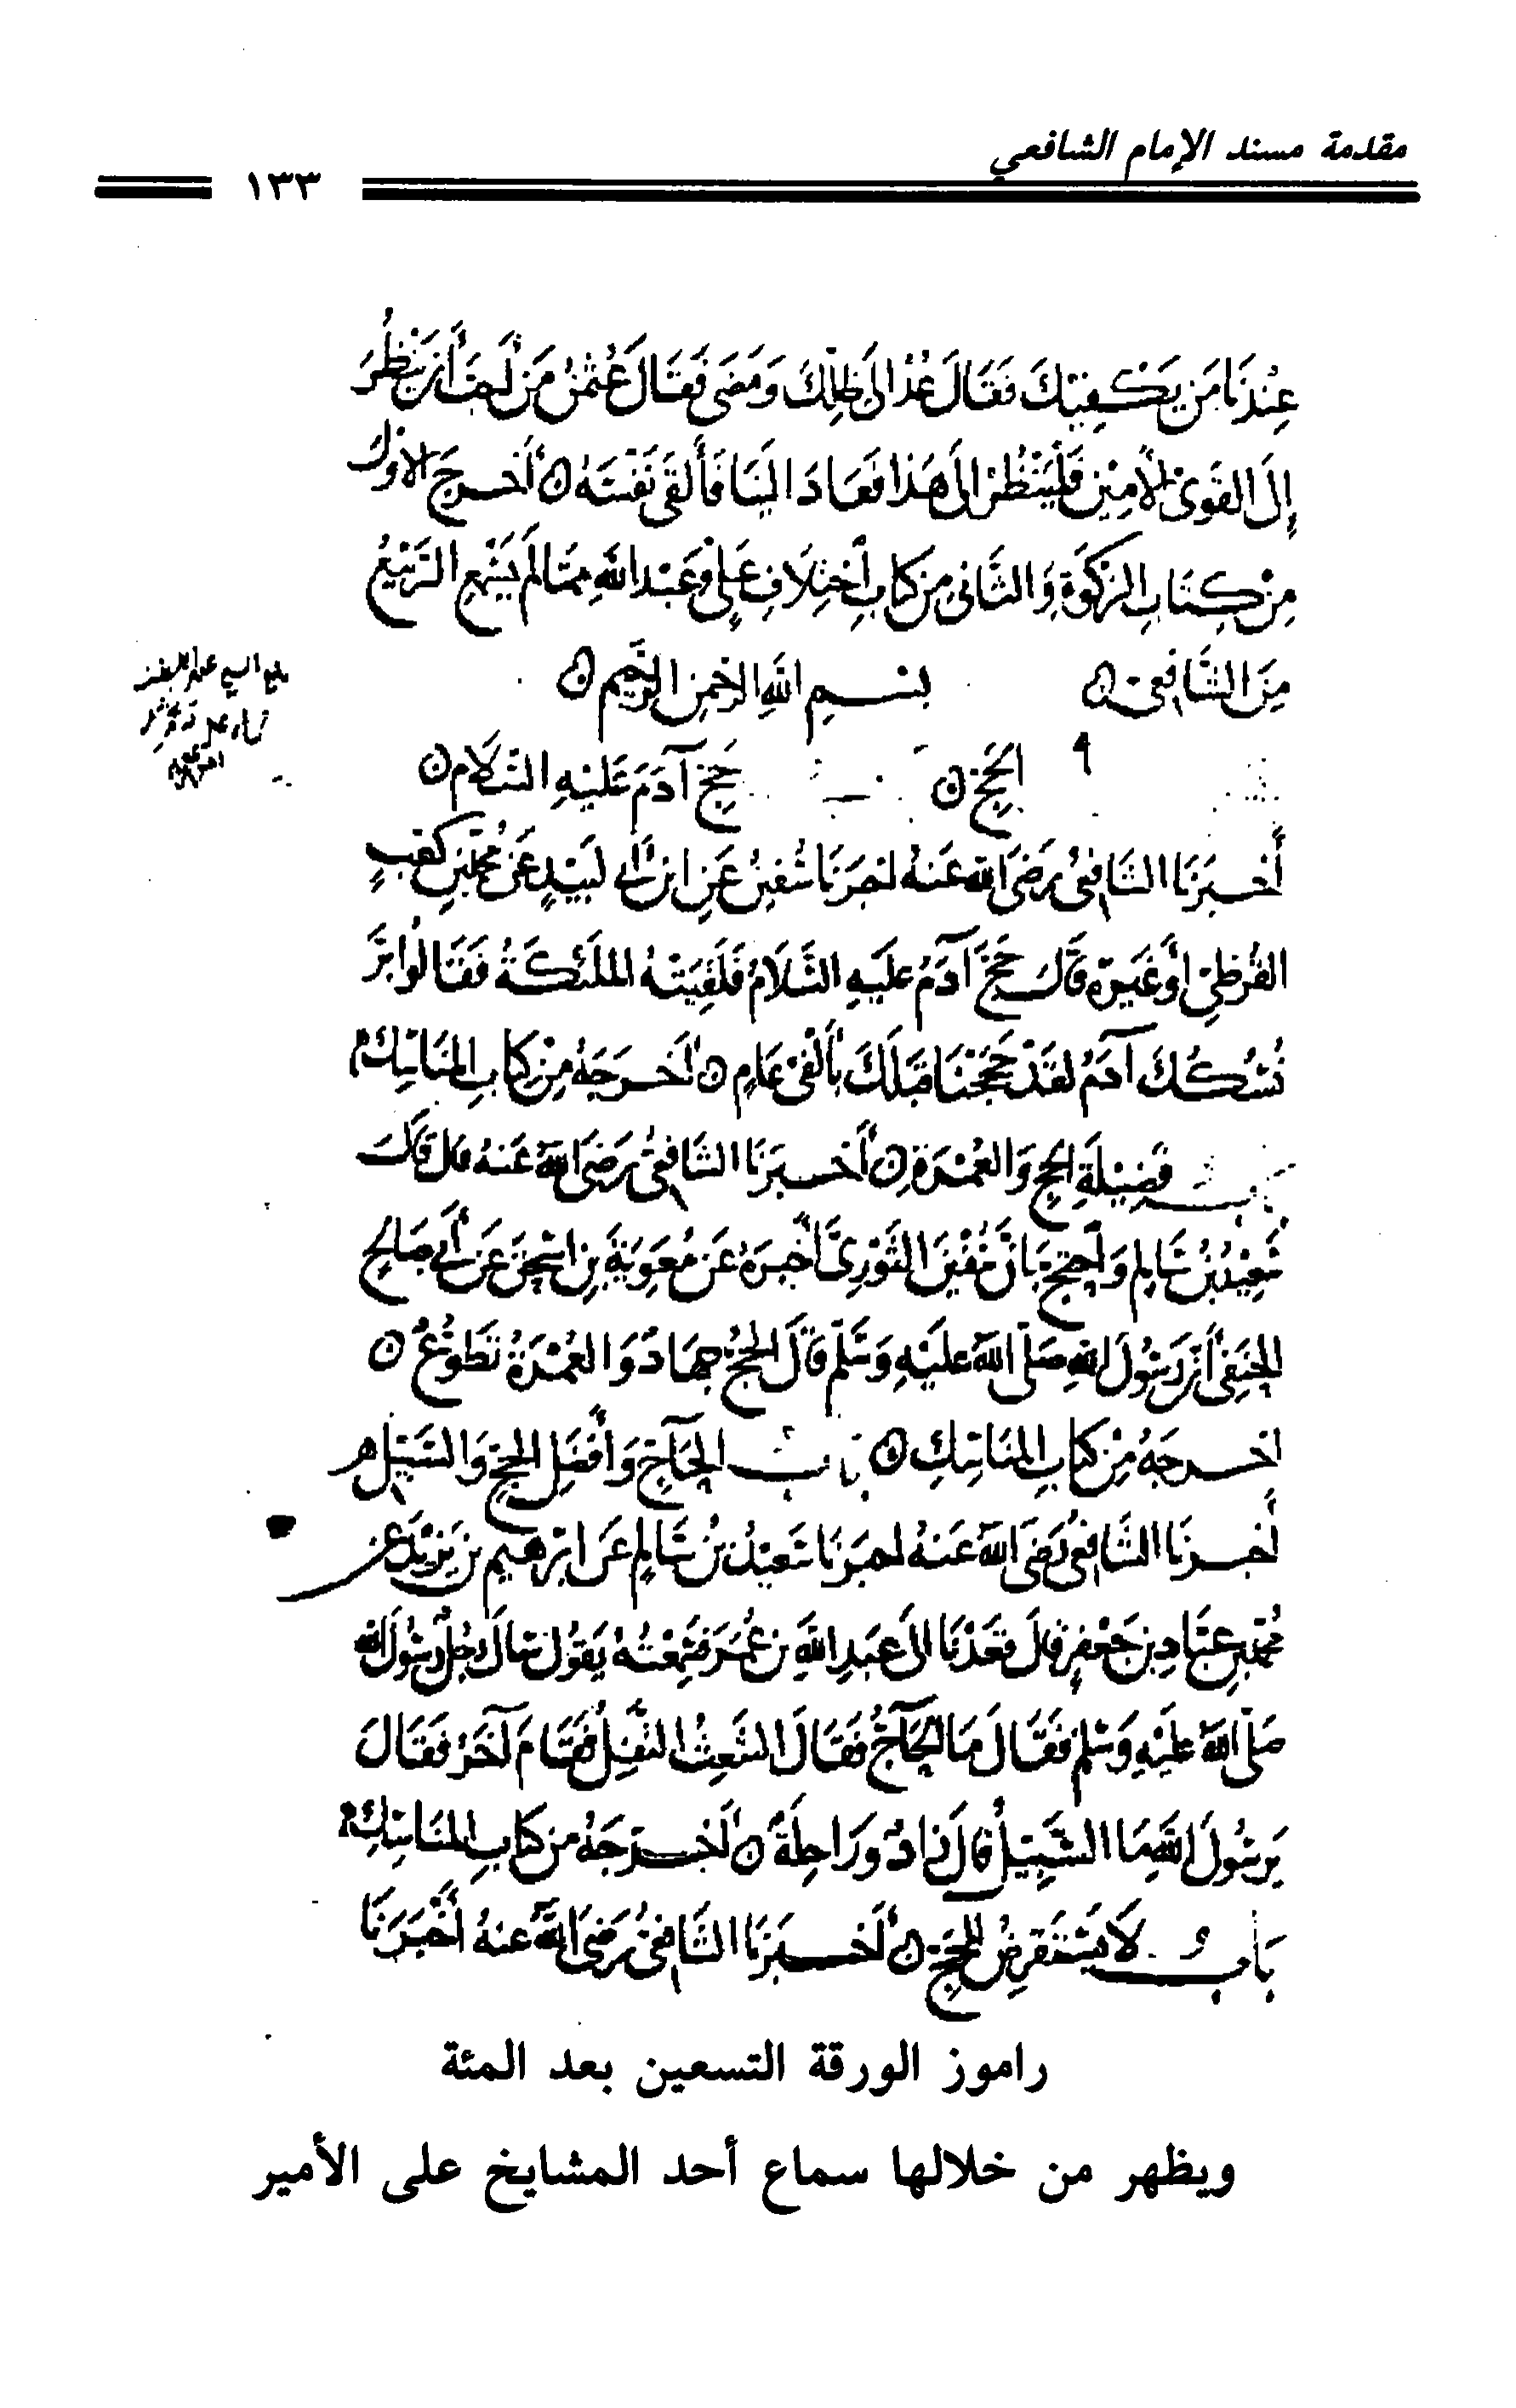 مقدمة مسند الإمام الشافعي
١٣٣
عِنْدَنَا مَن يَكْفِيكَ فَقَالَ عُدْ إلَى ظِلِّكَ وَمَضَى فَقَالَ عُثْمٰنُ مَنْ أَحَبَّ أَن يَنْظُرَ
إِلَى القَوِىِّ الأَمِيْنِ فَلْيَنْظُرْ إلَى هَذَا فَعَادَ إلَيْنَا فَأَلْقَى نَفْسَهُ ن أَخْرَجَ الأوَّلَ
مِنْ كِتَابِ الزَّكَوٰةِ وَالثَّانِى مِنْ كِتَابِ اخْتِلَافِ عَلِىٍّ وَعَبْدِ اللهِ مِمَّا لَمْ يَسْمَعِ الرَّبِيْعُ
مِنَ الشَّافِعِى ن بِسْمِ اللهِ الرَّحْمٰنِ الرَّحِيْمِ ن
الحَجّ ن حَجّ آدَمَ عَلَيْهِ السَّلَام ن
أَخْبَرَنَا الشَّافِعِىُّ رَضِىَ اللهُ عَنْهُ أخبَرَنَا سُفْيٰنُ عَنِ ابنِ أَبِى لَبِيْدٍ عَنْ مُحَمَّدِ بنِ كَعْبٍ
القُرَظِىِّ أَوْ غَيْرِهِ قَالَ حَجَّ آدَمُ عَلَيهِ السَّلَامُ فَلَقِيَتْهُ المَلٰئِكَةُ فَقَالُوا بَرَّ
نُسُكُكَ آدَمُ لَقَدْ حَجَجْنَا قَبْلَكَ بِأَلْفَىْ عَامٍ ن أَخْرَجَهُ مِنْ كِتَابِ المَنَاسِكِ
بَاب فَضِيْلَةِ الحَجِّ وَالعُمْرَةِ ن أَخْبَرَنَا الشَّافِعِىُّ رَضِىَ اللهُ عَنْهُ قال قَالَ
سَعِيْدُ بْنُ سَالِمٍ وَاحْتَجَّ بِأَنَّ سُفْيٰنَ الثَّوْرِىَّ أَخْبَرَهُ عَنْ مُعٰوِيَةَ بنِ إسْحٰقَ عَنْ أَبِى صَالِحٍ
الحَنَفِىِّ أَنَّ رَسُولَ اللهِ صَلَّى اللهُ عَلَيْهِ وَسَلَّمَ قَالَ الحَجُّ جِهَادٌ وَالعُمْرَةُ تَطَوُّعٌ ن
أخْرَجَهُ مِنْ كِتَابِ المَنَاسِكِ ن بَاب الحَاجِّ وَأَفْضَلِ الحَجِّ وَالسَّبِيْلِ
أَخْبَرَنَا الشَّافِعِىُّ رَضِىَ اللهُ عَنْهُ أخبَرَنَا سَعِيْدُ بْنُ سَالِمٍ عَنْ إبْرٰهِيمَ بنِ يَزِيْدَ عن
مُحَمَّدِ بنِ عَبَّادِ بنِ جَعْفَرٍ قَالَ قَعَدْنَا إلَى عَبدِ اللهِ بنِ عُمَرَ فَسَمِعْتُهُ يَقُولُ سَأَلَ رَجُلٌ رَسُولَ اللهِ
صَلَّى اللهُ عَلَيْهِ وَسَلَّمَ فَقَالَ مَا الحَاجُّ فَقَالَ الشَّعِثُ التَّفِلُ فَقَامَ آخَرُ فَقَالَ
يَرَسُولَ اللهِ مَا السَّبِيْلُ قَالَ زَادٌ وَرَاحِلَةٌ ن أَخْرَجَهُ مِنْ كِتَابِ المَنَاسِكِ
بَاب لَا يَسْتَقْرِضُ لِلحَجِّ ن أَخْبَرَنَا الشَّافِعِىُّ رَضِىَ اللهُ عَنْهُ أَخْبَرَنَا
راموز الورقة التسعين بعد المئة
ويظهر من خلالها سماع أحد المشايخ على الأمير